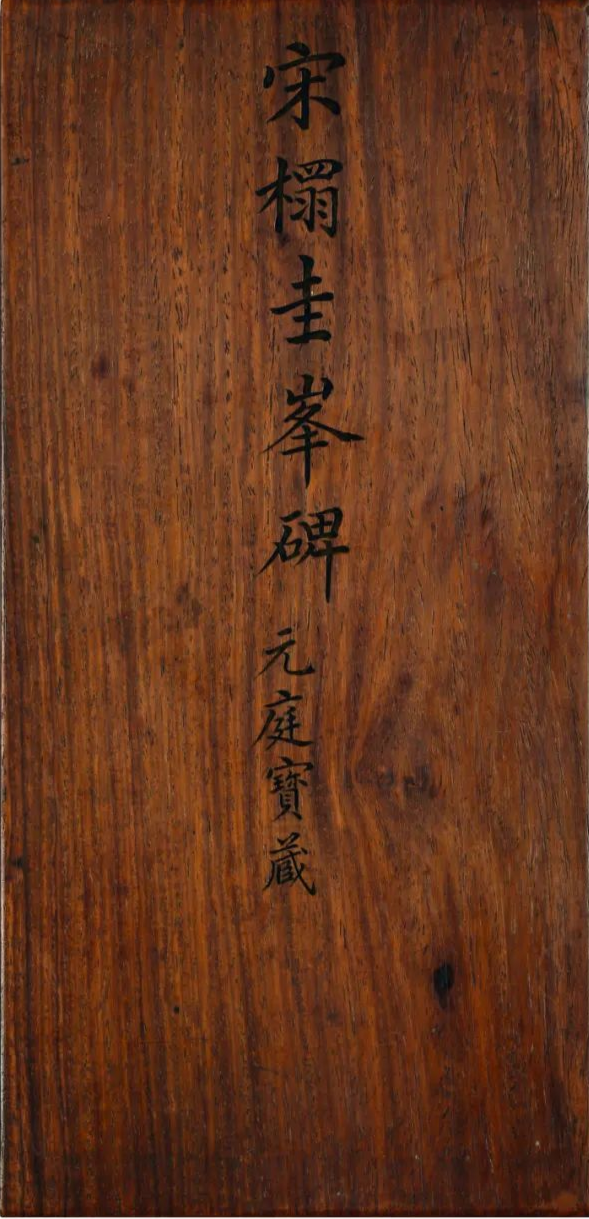 宋榻圭峯碑 元庭寶藏